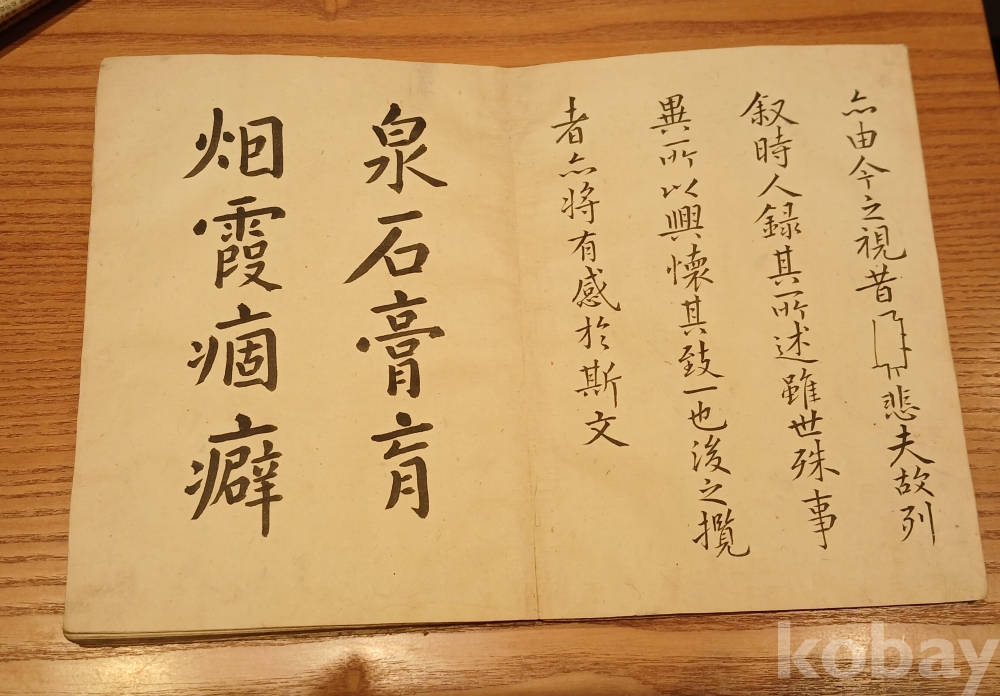 亦由今之視昔悲夫故列
叙時人録其所述雖世殊事
異所以興懷其致一也後之攬
者亦将有感於斯文
泉石膏肓
烟霞痼癖
kobay